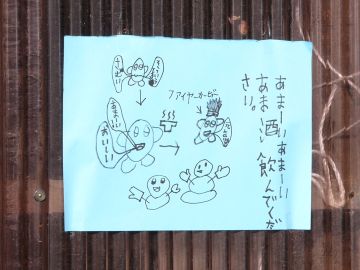 あまーいあまーい
あまーい酒 飲んでくだ
さい。
ファイヤーカービー
さむーい
あまーい
おいしい